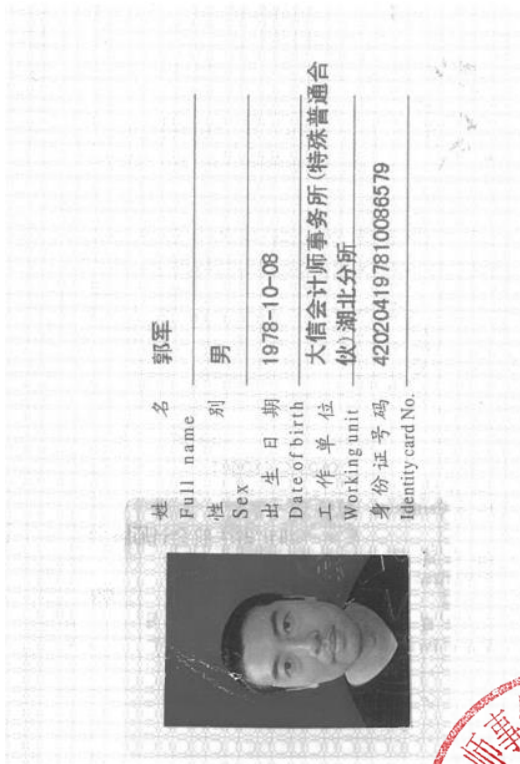 姓 名 郭军
Full name
性 别 男
Sex
出 生 日 期 1978-10-08
Date of birth
工 作 单 位 大信会计师事务所(特殊普通合
Working unit 伙)湖北分所
身 份 证 号 码 420204197810086579
Identity card No.
师事